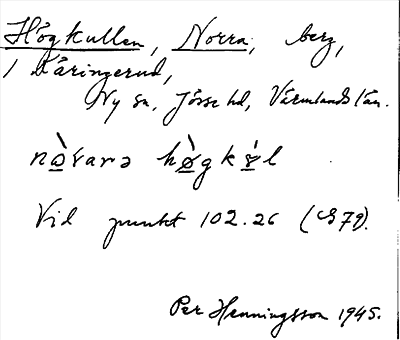 Högkullen, Norra, berg,
i Käringerud,
Ny sn, Jösse hd, Värmlands län.
Vid punkt 102.26 (S79).
Per Henningsson 1945.